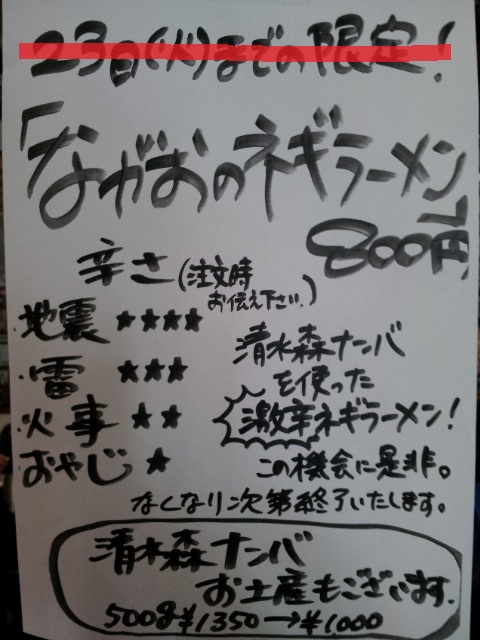 23日(火)までの限定!
「ながおのネギラーメン」
800円
辛さ(注文時お伝え下さい。)
地震 ★★★★
・雷 ★★★
・火事 ★★
おやじ ★
清水森ナンバ
を使った
激辛ネギラーメン!
この機会に是非。
なくなり次第終了いたします。
清水森ナンバ
お土産もございます。
500g¥1350→¥1000